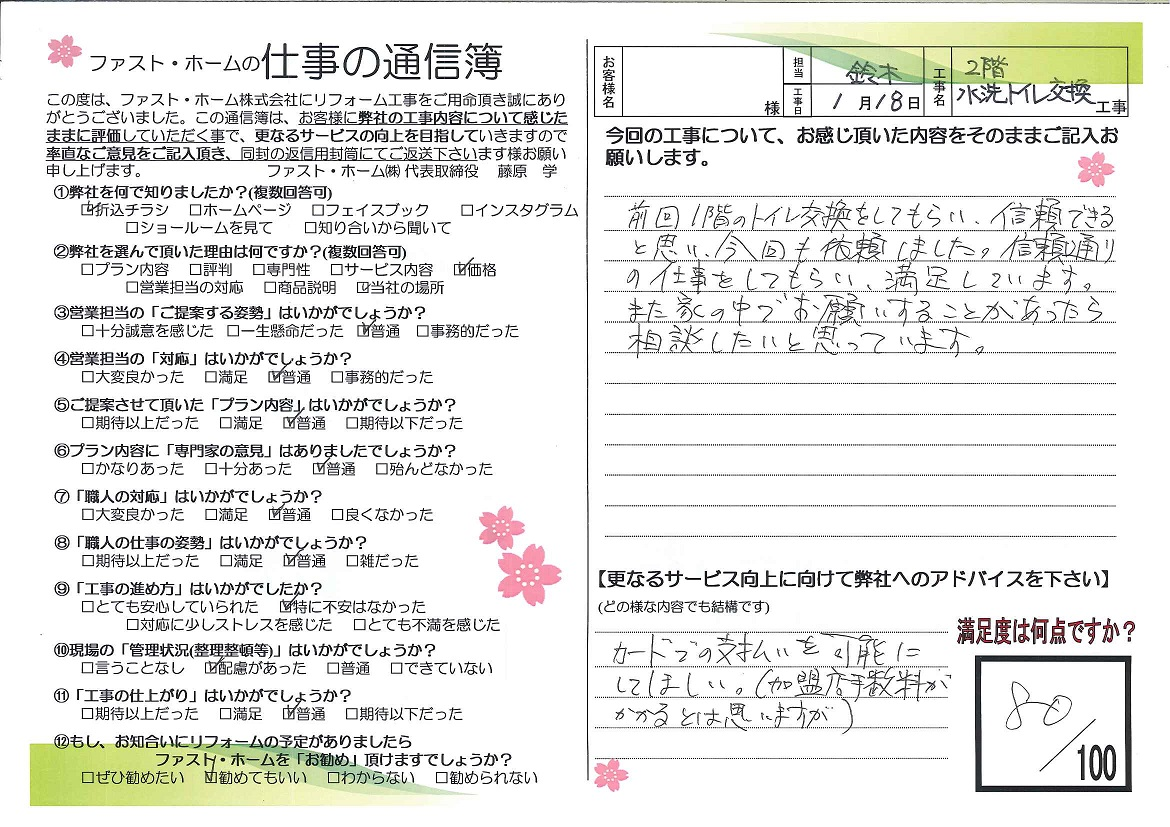 ファスト・ホームの仕事の通信簿
この度は、ファスト・ホーム株式会社にリフォーム工事をご用命頂き誠にあり
がとうございました。この通信簿は、お客様に弊社の工事内容について感じた
ままに評価していただく事で、更なるサービスの向上を目指していきますので
率直なご意見をご記入頂き、同封の返信用封筒にてご返送下さいます様お願い
申し上げます。 ファスト・ホーム㈱ 代表取締役 藤原 学
①弊社を何で知りましたか?(複数回答可)
☑折込チラシ □ホームページ □フェイスブック □インスタグラム
□ショールームを見て □知り合いから聞いて
②弊社を選んで頂いた理由は何ですか?(複数回答可)
□プラン内容 □評判 □専門性 □サービス内容 ☑価格
□営業担当の対応 □商品説明 ☑当社の場所
③営業担当の「ご提案する姿勢」はいかがでしょうか?
□十分誠意を感じた □一生懸命だった ☑普通 □事務的だった
④営業担当の「対応」はいかがでしょうか?
□大変良かった □満足 ☑普通 □事務的だった
⑤ご提案させて頂いた「プラン内容」はいかがでしょうか?
□期待以上だった □満足 ☑普通 □期待以下だった
⑥プラン内容に「専門家の意見」はありましたでしょうか?
□かなりあった □十分あった ☑普通 □殆んどなかった
⑦「職人の対応」はいかがでしょうか?
□大変良かった □満足 ☑普通 □良くなかった
⑧「職人の仕事の姿勢」はいかがでしょうか?
□期待以上だった □満足 ☑普通 □雑だった
⑨「工事の進め方」はいかがでしたか?
□とても安心していられた ☑特に不安はなかった
□対応に少しストレスを感じた □とても不満を感じた
⑩現場の「管理状況(整理整頓等)」はいかがでしょうか?
□言うことなし ☑配慮があった □普通 □できていない
⑪「工事の仕上がり」はいかがでしょうか?
□期待以上だった □満足 ☑普通 □期待以下だった
⑫もし、お知合いにリフォームの予定がありましたら
ファスト・ホームを「お勧め」頂けますでしょうか?
□ぜひ勧めたい ☑勧めてもいい □わからない □勧められない
お客様名 様 担当 鈴木 工事日 1月18日 工事名 2階 水洗トイレ交換工事
今回の工事について、お感じ頂いた内容をそのままご記入お
願いします。
前回1階のトイレ交換をしてもらい、信頼できる
と思い、今回も依頼しました。信頼通り
の仕事をしてもらい、満足しています。
また家の中でお願いすることがあったら
相談したいと思っています。
【更なるサービス向上に向けて弊社へのアドバイスを下さい】
(どの様な内容でも結構です)
カードでの支払いを可能に
してほしい。(加盟店手数料が
かかるとは思いますが)
満足度は何点ですか?
80/100